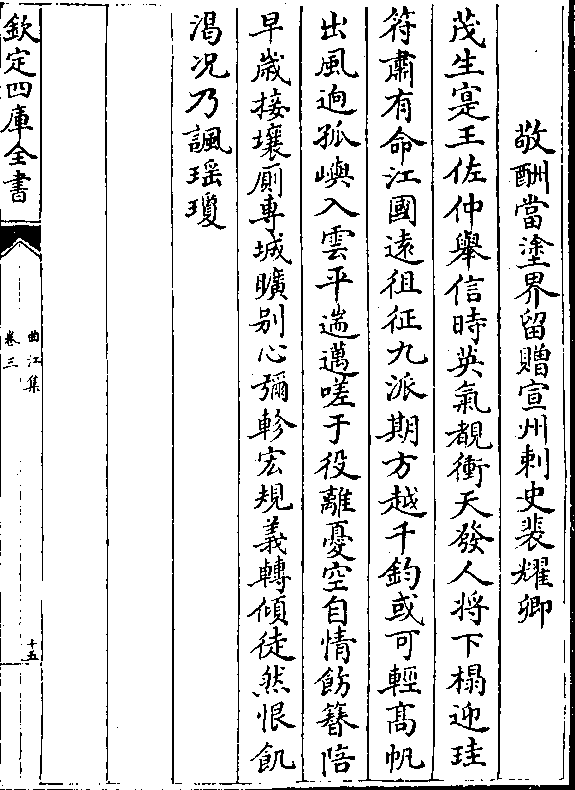 敬酬當塗界留贈宣州刺史裴耀卿
茂生寔王佐仲舉信時英氣覩衝天發人將下榻迎珪
符肅有命江國遠徂征九派期方越千鈞或可輕高帆
出風迥孤嶼入雲平遄邁嗟于役離憂空自情飭簪陪
早歳接壤厠專城曠别心彌軫宏規義轉傾徒然恨飢
渴况乃諷瑶瓊
欽定四庫全書
曲江集
卷三
十五